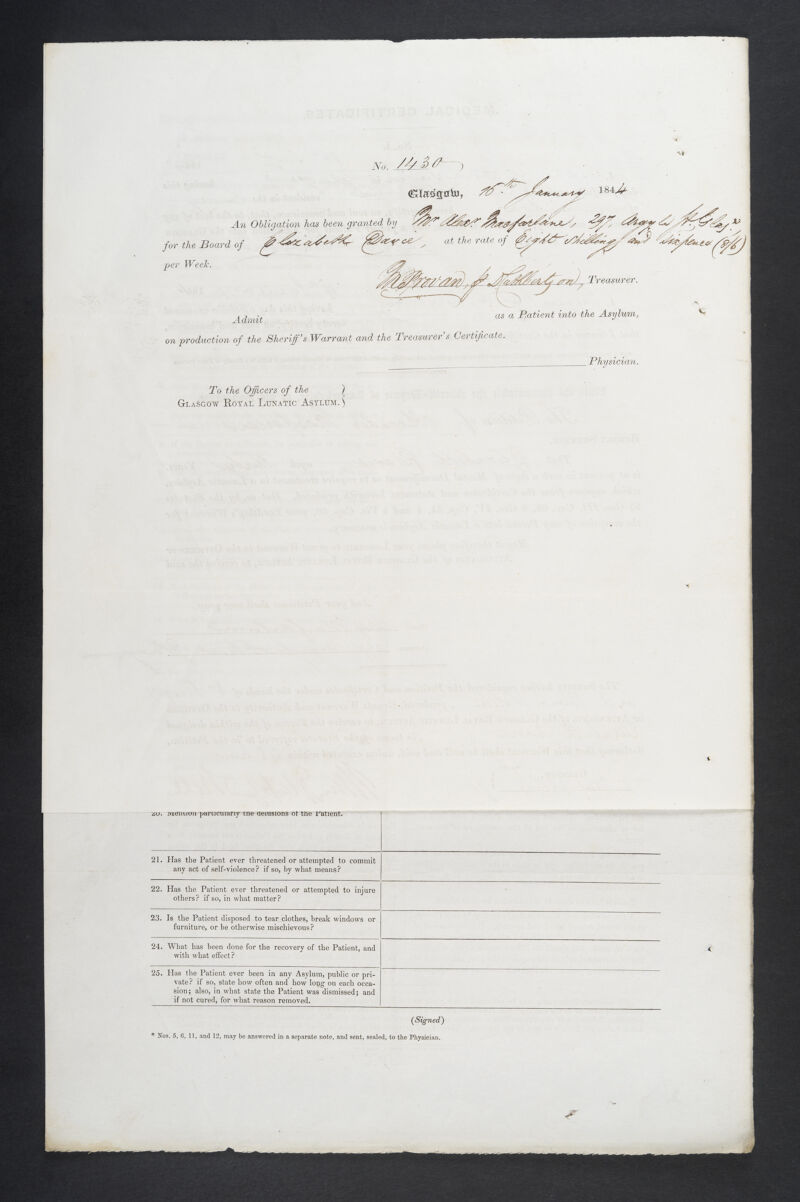 No. 1430
Glasgow, 15th January 1844
An Obligation has been granted by Mr Alexr Macfarlane, 297, Argyle St. Glasw
for the Board of Elizabeth at the rate of Eight Shillings and Sixpence (8/6)
per Week.
McProvan, p Cuthbertson, Treasurer.
Admit as a Patient into the Asylum,
on production of the Sheriff's Warrant and the Treasurer's Certificate.
Physician.
To the Officers of the
Glasgow Royal Lunatic Asylum.
20. Mention particularly the delusions of the Patient.
21. Has the Patient ever threatened or attempted to commit
any act of self-violence? if so, by what means?
22. Has the Patient ever threatened or attempted to injure
others? if so, in what matter?
23. Is the Patient disposed to tear clothes, break windows or
furniture, or be otherwise mischievous?
24. What has been done for the recovery of the Patient, and
with what effect?
25. Has the Patient ever been in any Asylum, public or pri-
vate? if so, state how often and how long on each occa-
sion; also, in what state the Patient was dismissed; and
if not cured, for what reason removed.
(Signed)
* Nos. 5, 6, 11, and 12, may be answered in a separate note, and sent, sealed, to the Physician.